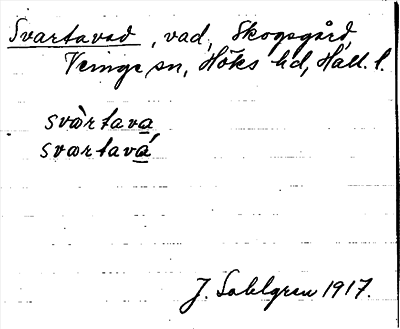 Svartavad, vad, Skogsgård,
Veinge sn, Höks hd, Hall. l.
svàrtava
svartavá,
J. Sahlgren 1917.